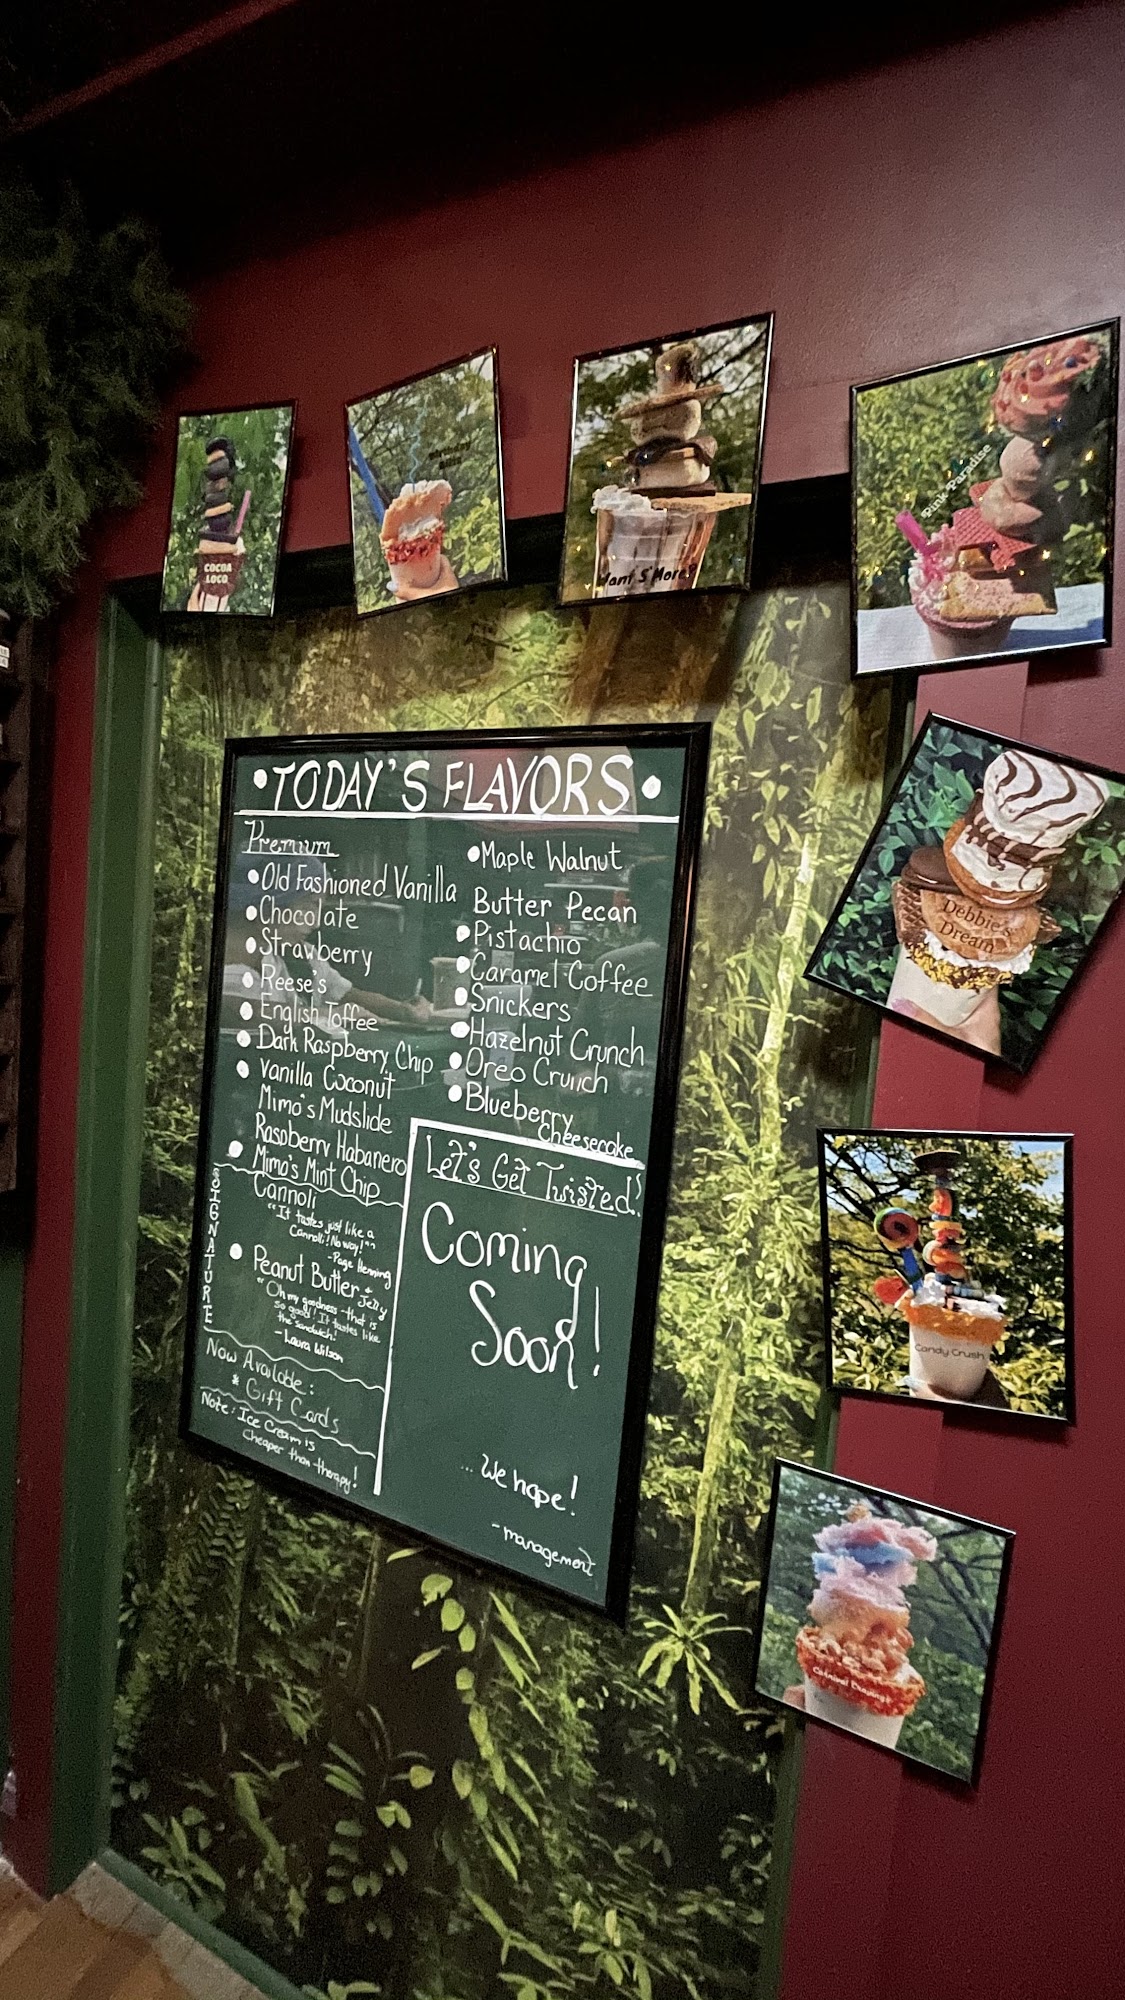 COCOA
LOCO
Want S'More?
Pink Paradise
• TODAY'S FLAVORS •
Premium
• Old Fashioned Vanilla
• Chocolate
• Strawberry
• Reese's
• English Toffee
• Dark Raspberry Chip
• Vanilla Coconut
Mimo's Mudslide
Raspberry Habanero
• Mimo's Mint Chip
• Maple Walnut
Butter Pecan
• Pistachio
• Caramel Coffee
• Snickers
• Hazelnut Crunch
• Oreo Crunch
• Blueberry
Cheesecake
SIGNATURE
Cannoli
"It tastes just like a
Cannolli! No way!""
-Page Henning
• Peanut Butter & Jelly
"Oh my goodness-that is
so good! It tastes like
the sandwich!
-Laura Wilson
Now Available:
* Gift Cards
Note: Ice Cream is
Cheaper than therapy!
Let's Get Twisted!
Coming
Soon!
... We hope!
- management
Debbie's
Dream
Candy Crush
Carnival Cravings